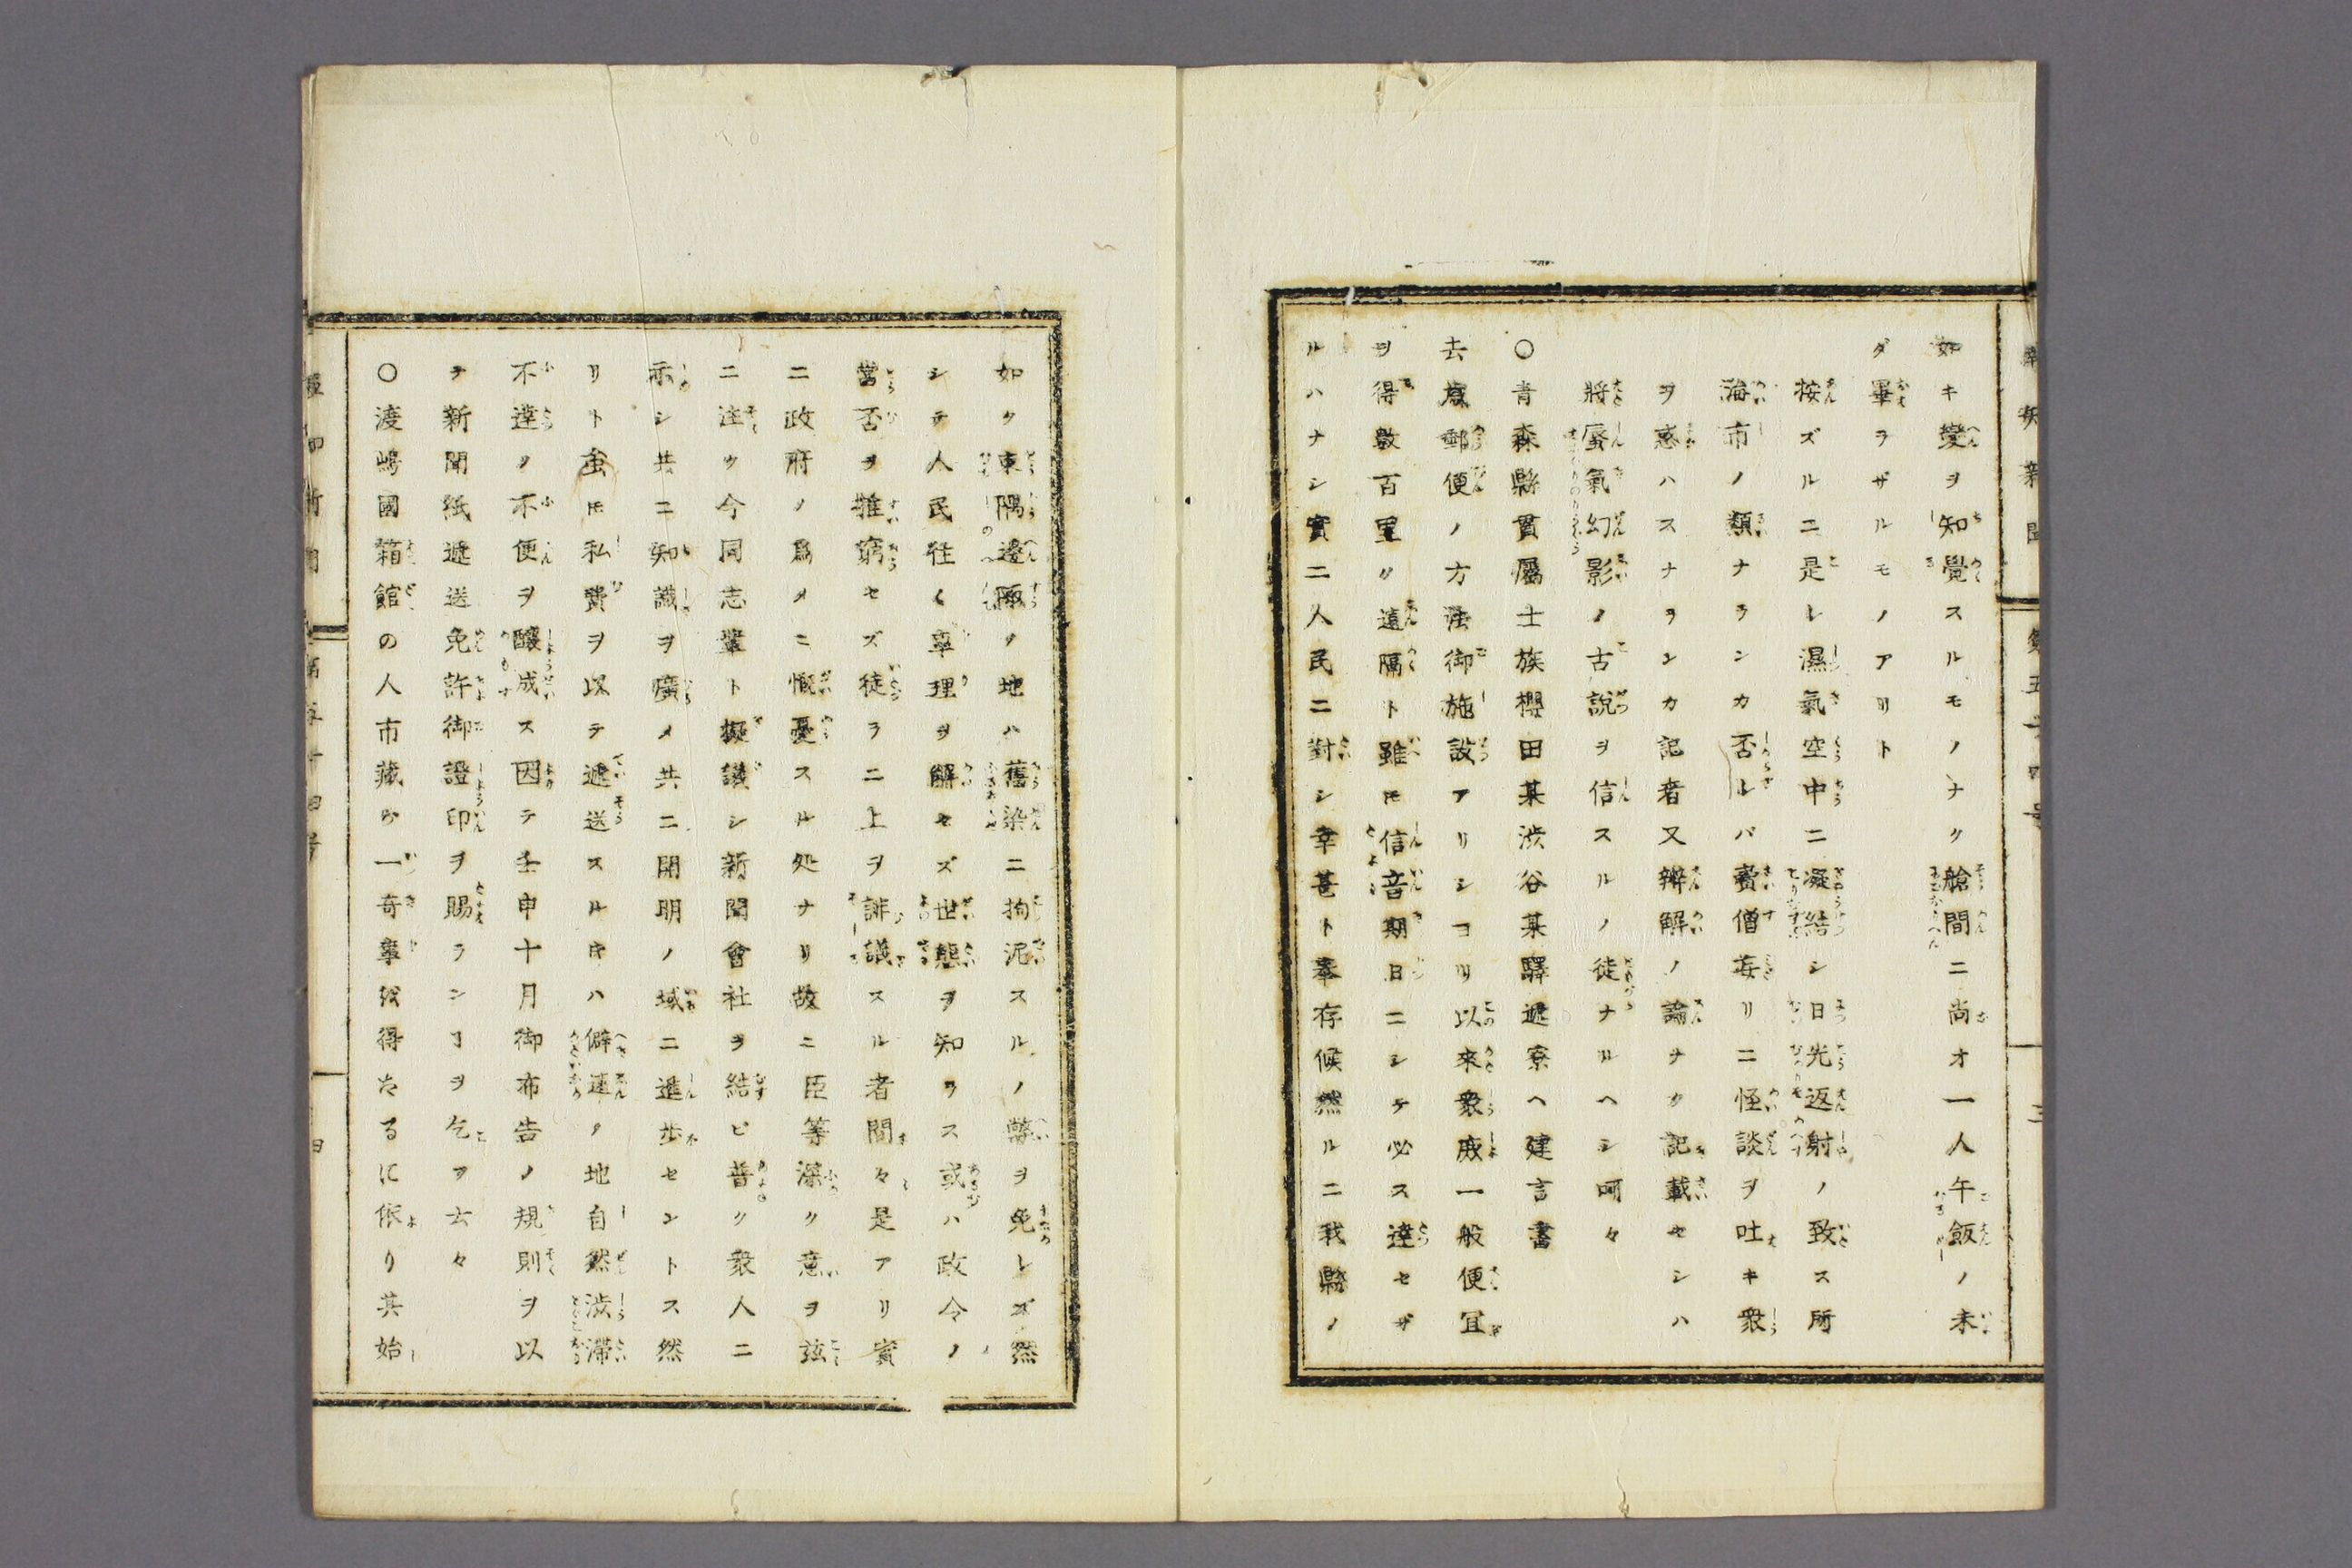 如キ變ヲ知覺スルモノナク艙間ニ尚オ一人午飯ノ未
ダ畢ヲザルモノアリト
按ズルニ是レ濕氣空中ニ凝結シ日光返射ノ致ス所
海市ノ類ナランカ否レバ賣僧妄リニ怪談ヲ吐キ衆
ヲ惑ハスナランカ記者又辨解ノ論ナク記載セシハ
將蜃氣幻影ノ古說ヲ信スルノ徒ナルヘシ呵々
○青森縣貫屬士族櫻田某渋谷某驛逓寮ヘ建言書
去歳郵便ノ方法御施設アリシヨリ以來衆庶一般便宜
ヲ得數百里ノ遠隔ト雖𪜈信音期日ニシテ必ス達セザ
ルハナシ實ニ人民ニ對シ幸甚ト奉存候然ルニ我縣ノ
如ク東隅邊陬ノ地ハ舊染ニ拘泥スルノ弊ヲ免レズ然
シテ人民往々事理ヲ解セズ世態ヲ知ラス或ハ政令ノ
當否ヲ推窮セズ徒ラニ上ヲ誹議スル者間々是アリ實
ニ政府ノ爲メニ慨憂スル処ナリ故ニ臣等深ク意ヲ玆
ニ注ク今同志輩ト擬議シ新聞會社ヲ結ビ普ク衆人ニ
示シ共ニ知識ヲ廣メ共ニ開明ノ域ニ進歩セントス然
リト虽𪜈私費ヲ以テ遞送スル𪜈ハ僻遠ノ地自然渋滯
不達ノ不便ヲ釀成ス因テ壬申十月御布告ノ規則ヲ以
テ新聞紙遞送免許御證印ヲ賜ランヿヲ乞フ云々
○渡嶋國箱館の人市藏が一奇事を得たるに依り其始